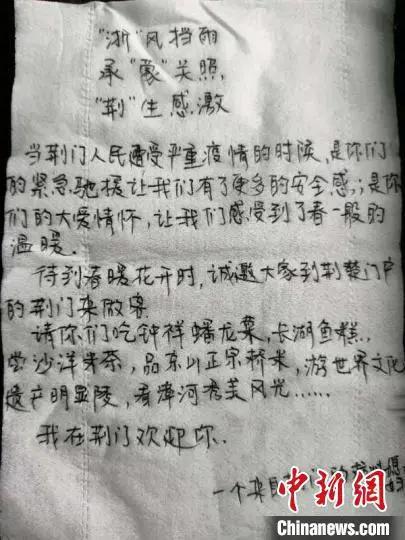 "浙"风挡雨
承"蒙"关照,
"荆"生感激
当荆门人民遭受严重疫情的时候,是你们
的紧急驰援让我们有了更多的安全感;是你
们的大爱情怀,让我们感受到了春一般的
温暖。
待到春暖花开时,诚邀大家到荆楚门户
的荆门来做客
请你们吃钟祥蟠龙菜,长湖鱼糕,
尝沙洋朱奈,品京山正宗桥米,游世界文化
遗产明显陵,看漳河秀美风光……
我在荆门欢迎你.
一个来自
中新网
Chinanews.com